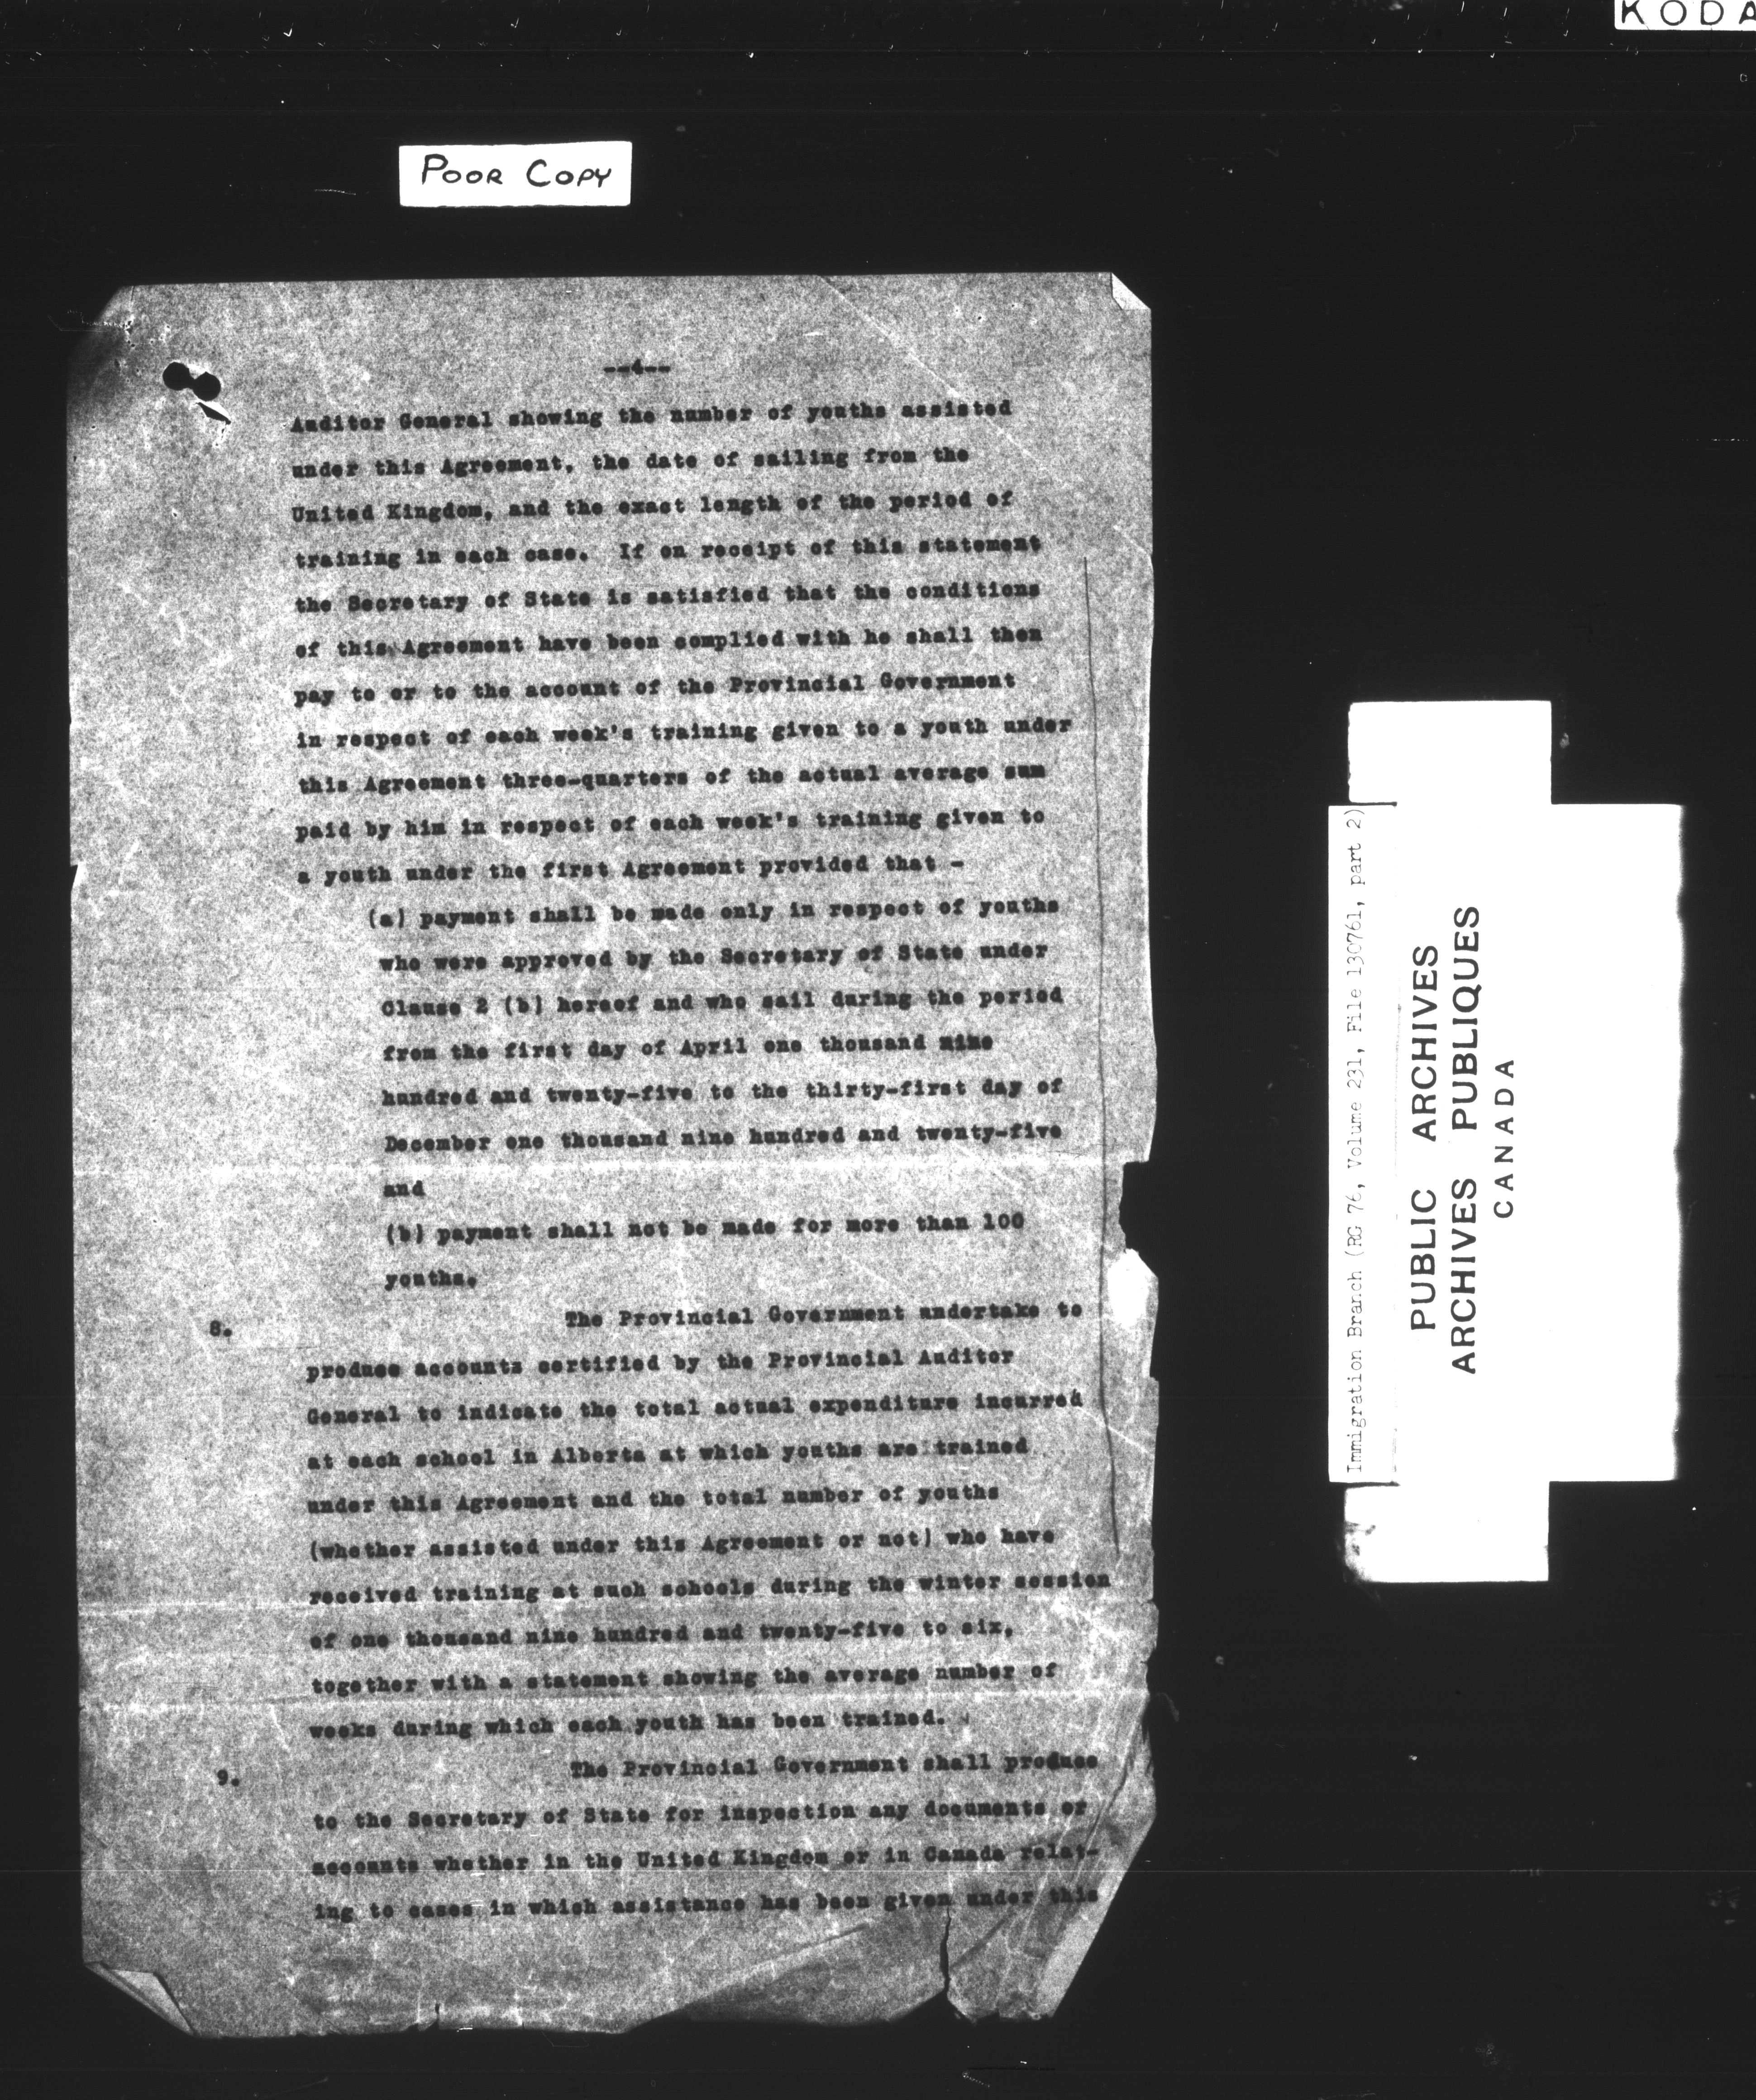 KODA
POOR COPY
--4--
Auditor General showing the number of youths assisted
under this Agreement, the date of sailing from the
United Kingdom, and the exact length of the period of
training in each case. If on receipt of this statement
the Secretary of State is satisfied that the conditions
of this Agreement have been complied with he shall then
pay to or to the account of the Provincial Government
in respect of each week's training given to a youth under
this Agreement three-quarters of the actual average sum
paid by him in respect of each week's training given to
a youth under the first Agreement provided that -
(a) payment shall be made only in respect of youths
who were approved by the Secretary of State under
Clause 2 (b) hereof and who sail during the period
from the first day of April one thousand nine
hundred and twenty-five to the thirty-first day of
December one thousand nine hundred and twenty-five
and
(b) payment shall not be made for more than 100
youths.
8. The Provincial Government undertake to
produce accounts certified by the Provincial Auditor
General to indicate the total actual expenditure incurred
at each school in Alberta at which youths are trained
under this Agreement and the total number of youths
(whether assisted under this Agreement or not) who have
received training at such schools during the winter session
of one thousand nine hundred and twenty-five to six,
together with a statement showing the average number of
weeks during which each youth has been trained.
9. The Provincial Government shall produce
to the Secretary of State for inspection any documents or
accounts whether in the United Kingdom or in Canada relat-
ing to cases in which assistance has been given under this
Immigration Branch (RG 76, Volume 231, File 130761, part 2)
PUBLIC ARCHIVES
ARCHIVES PUBLIQUES
CANADA